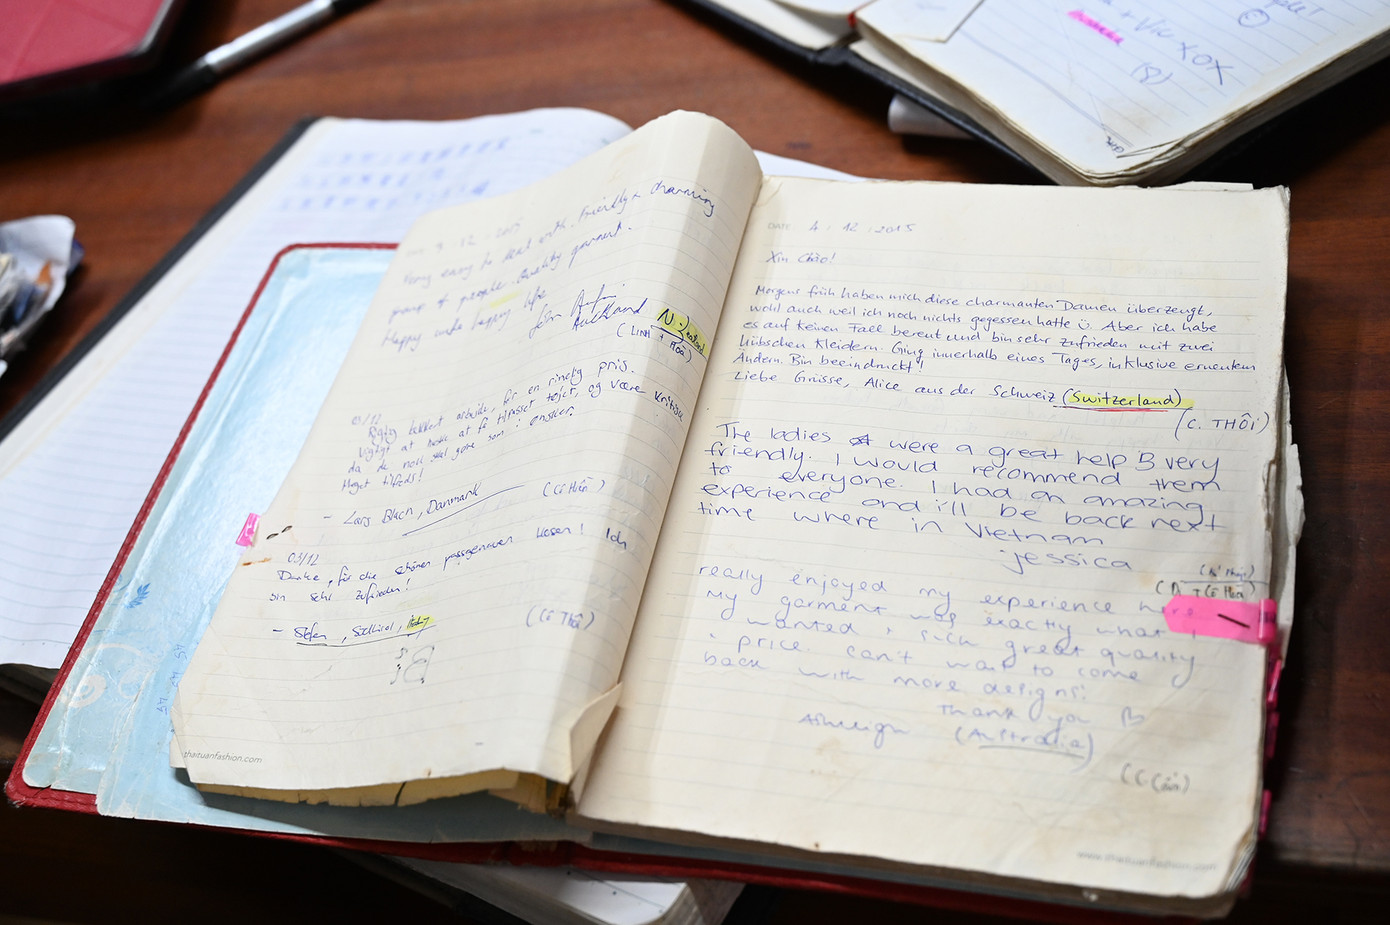 3 . 12 . 2015
Very easy to deal with. Friendly & charming
group of people. Quality garment.
Happy wife happy life
John
Auckland N. Zealand
(LINH + HOA)
03/12
Rigtig lækkert arbejde, for en rimelig pris.
Vigtigt at huske at få tilpasset tøjet, og være kritisk
da de nok skal gøre som i ønsker.
Meget tilfreds!
- Lars Bach, Danmark
(Cô Hiền)
03/12
Danke, für die schönen passgenauen Hosen! Ich
bin sehr zufrieden!
- Stefan, Südtirol, Italy
(Cô Thôi)
thaituanfashion.com
DATE 4 . 12 . 2015
Xin Chào!
Morgens früh haben mich diese charmanten Damen überzeugt,
wohl auch weil ich noch nichts gegessen hatte ü. Aber ich habe
es auf keinen Fall bereut und bin sehr zufrieden mit zwei
hübschen Kleidern. Ging innerhalb eines Tages, inklusive erneutem
Ändern. Bin beeindruckt!
Liebe Grüsse, Alice aus der Schweiz (Switzerland)
(C. THÔI)
The ladies were a great help & very
friendly. I would recommend them
to everyone. I had an amazing
experience and i'll be back next
time where in Vietnam
jessica
really enjoyed my experience here
My garment was exactly what I
wanted, & such great quality
& price. can't wait to come
back with more designs!
Thank you
Ashleigh (Australia)
www.thaituanfashion.com
+ Vic XOX